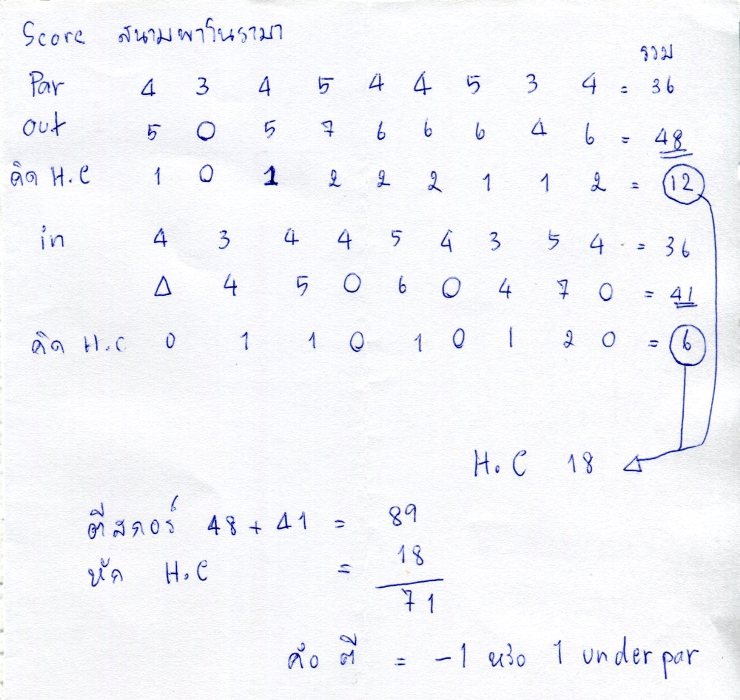 Score สนามพาโนรามา
รวม
Par 4 3 4 5 4 4 5 3 4 = 36
out 5 0 5 7 6 6 6 4 6 = 48
คิด H.C 1 0 1 2 2 2 1 1 2 = 12
in 4 3 4 4 5 4 3 5 4 = 36
Δ 4 5 0 6 0 4 7 0 = 41
คิด H.C 0 1 1 0 1 0 1 2 0 = 6
H.C 18
ตีสกอร์ 48 + 41 = 89
หัก H.C = 18
71
คือ ตี = -1 หรือ 1 under par